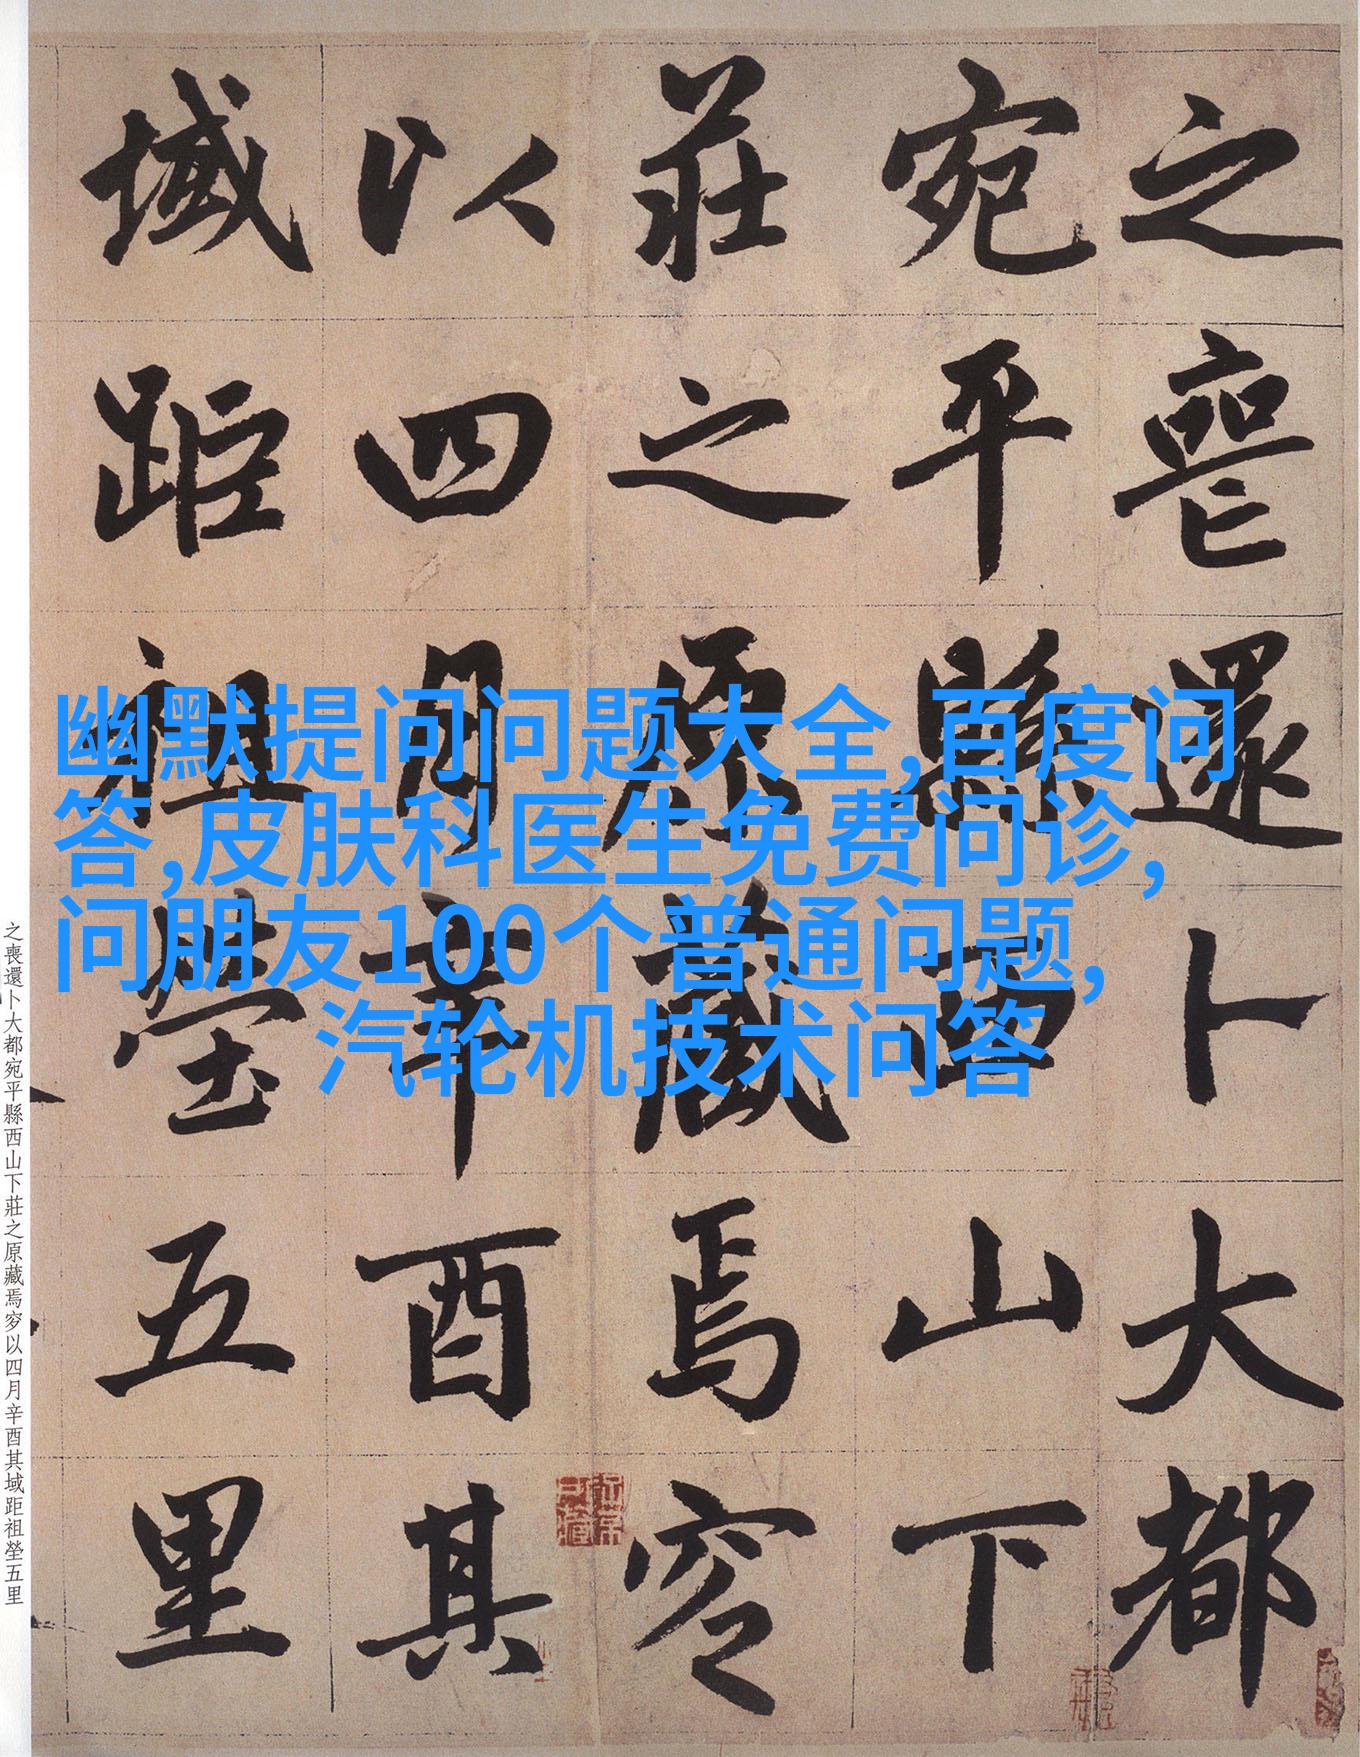 之喪還卜大都
宛平縣西山下
莊之原藏焉窆
以四月辛酉其
域距祖塋五里
幽默提问问题大全,百度问
答,皮肤科医生免费问诊,
问朋友100个普通问题,
汽轮机技术问答
之喪還卜大都宛平縣西山下莊之原藏焉窆以四月辛酉其域距祖塋五里